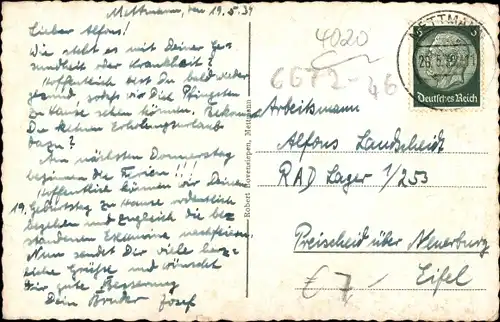 Mettmann, den 19.5.39
Lieber Alfons!
Wie steht es mit Deiner Ge-
sundheit oder Krankheit?
Hoffentlich bist Du bald wieder
gesund, sodass wir Dich Pfingsten
zu Hause sehen können. Bekommst
Du keinen Erholungsurlaub
dazu?
Am nächsten Donnerstag
beginnen die Ferien!!!
Hoffentlich können wir Deinen
19. Geburtstag zu Hause ordentlich
begehen und zugleich die be-
standenen Examina nachfeiern.
Nun sendet Dir viele herz-
liche Grüße und wünscht
Dir gute Besserung
Dein Bruder Josef
Robert Bovensiepen, Mettmann
4020
6672-46
METTMANN
Deutsches Reich
Arbeitsmann
Alfons Landscheidt
RAD Lager 1/253
Preischeid über Neuerburg
Eifel
€ 7,-